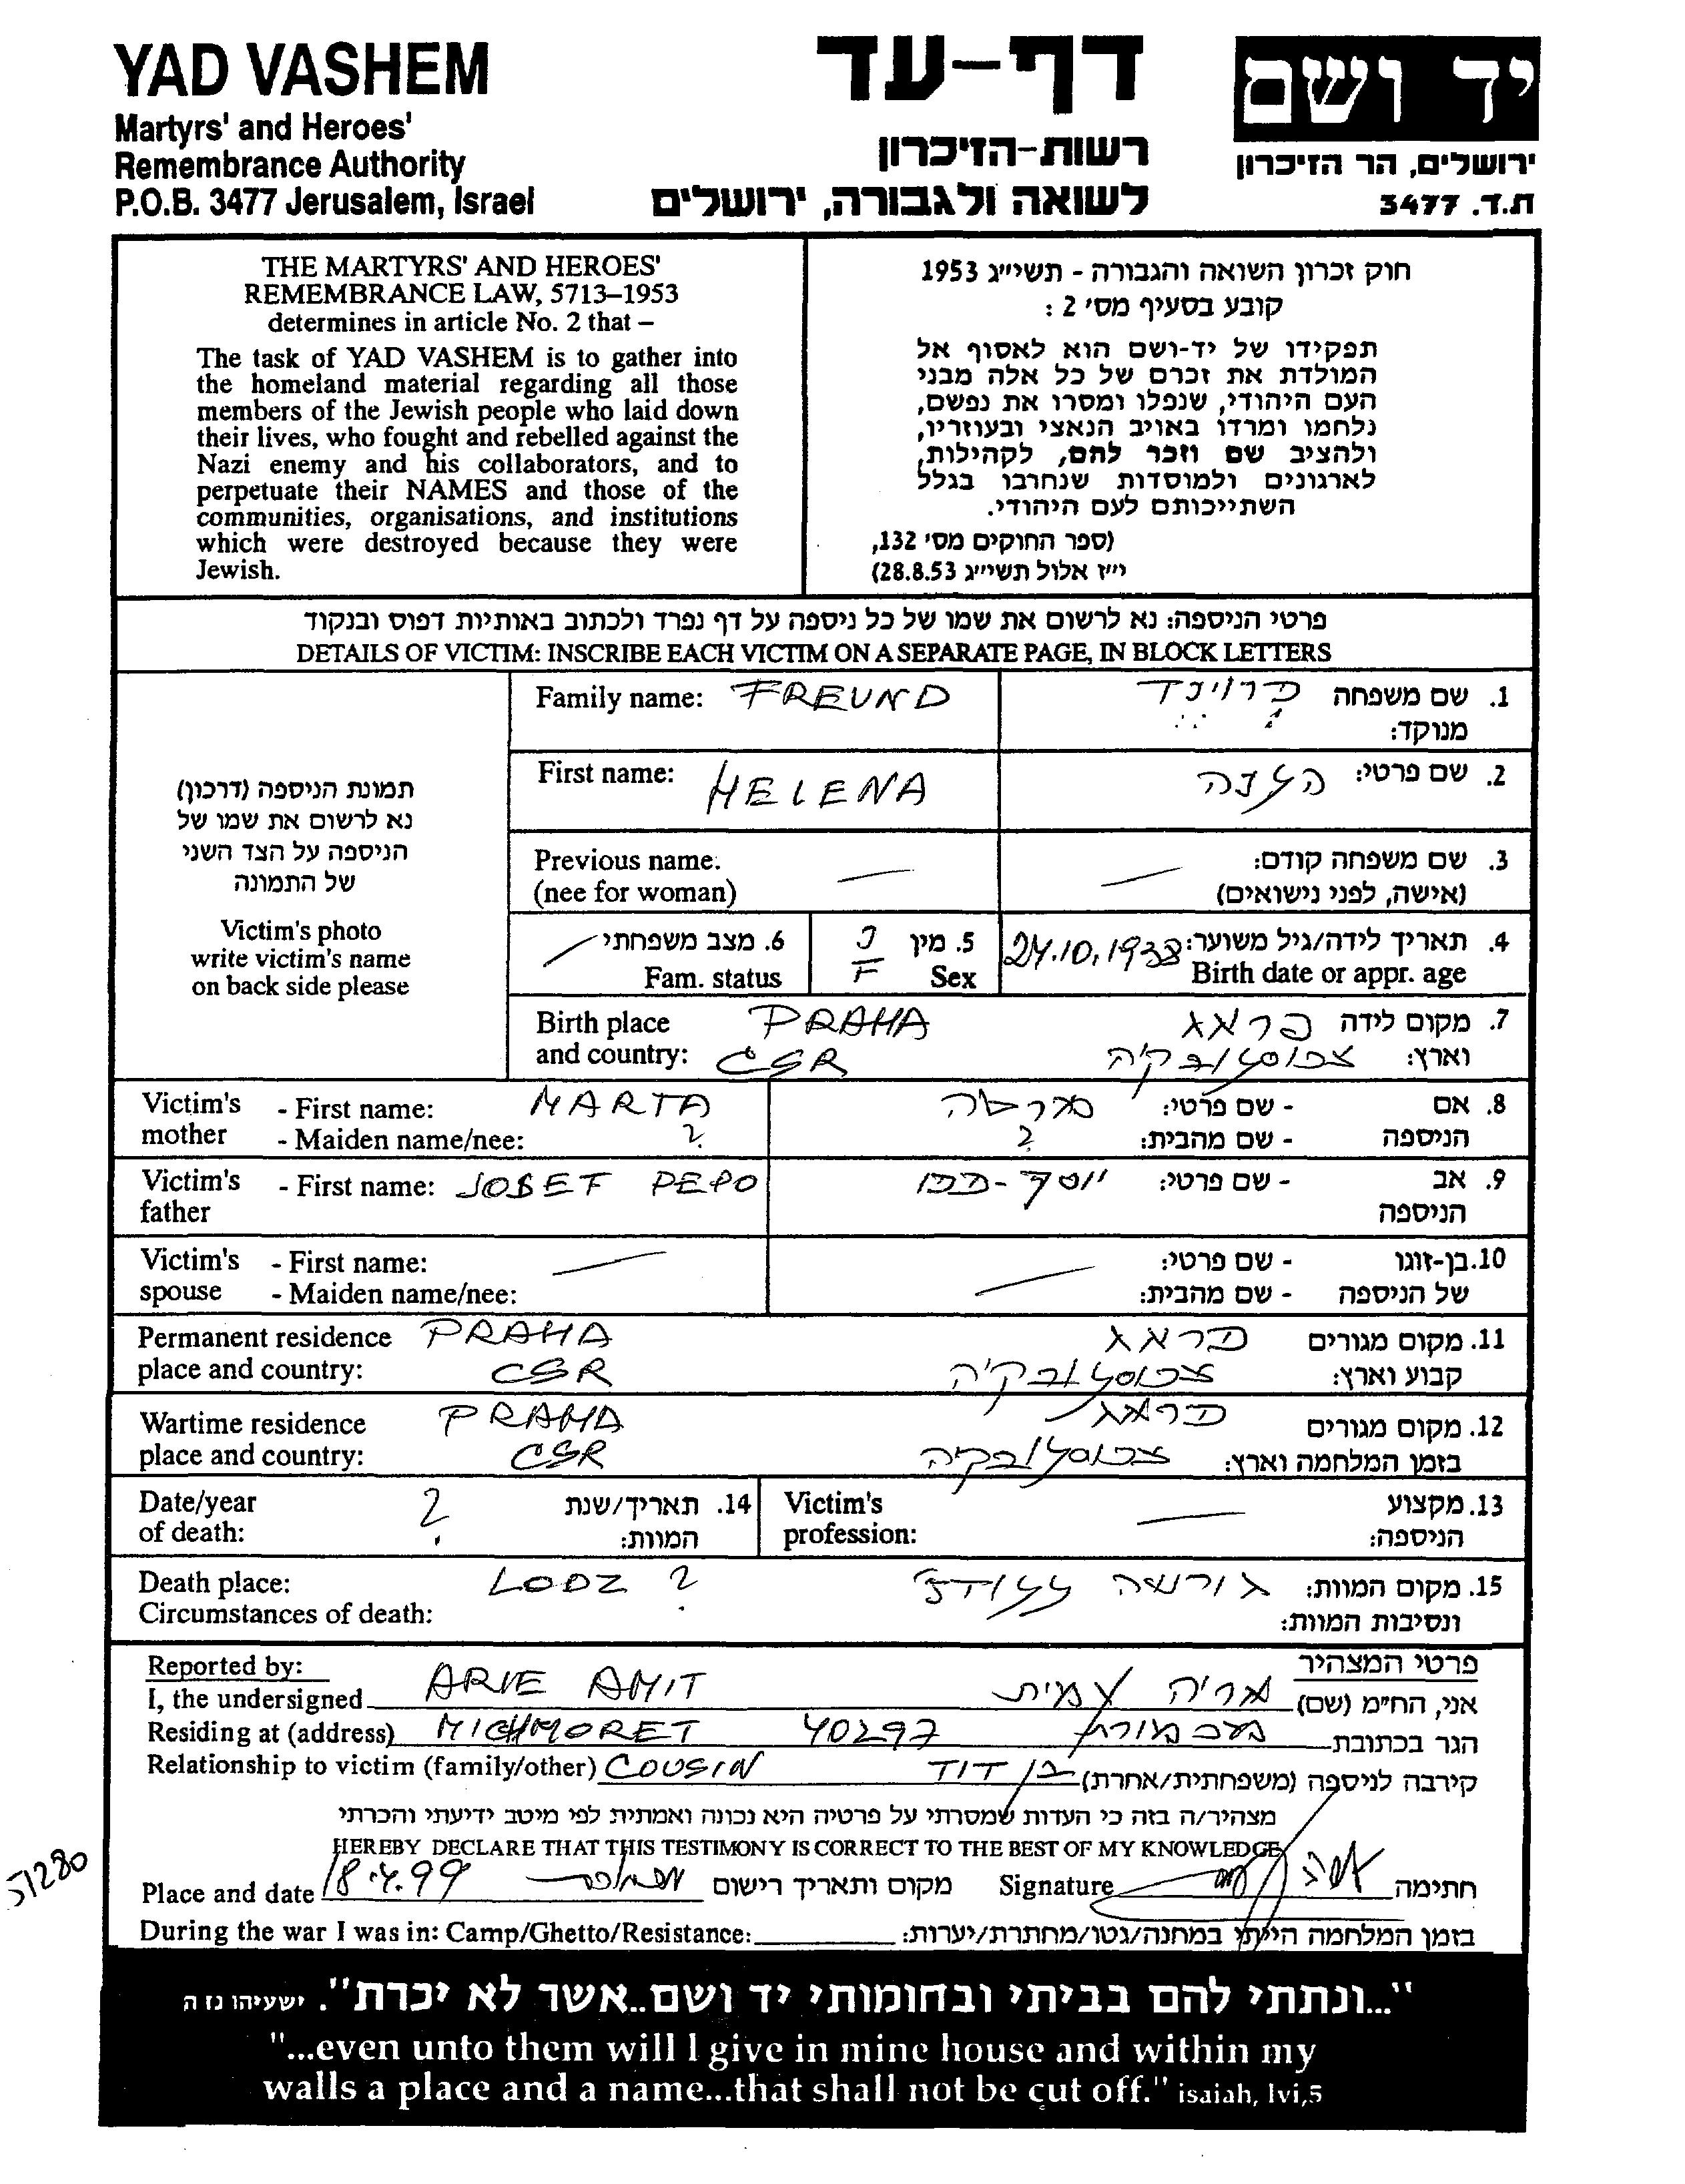 YAD VASHEM
Martyrs' and Heroes'
Remembrance Authority
P.O.B. 3477 Jerusalem, Israel
דף-עד
רשות-הזיכרון
לשואה ולגבורה, ירושלים
יד ושם
ירושלים, הר הזיכרון
ת.ד. 3477
THE MARTYRS' AND HEROES'
REMEMBRANCE LAW, 5713–1953
determines in article No. 2 that –
The task of YAD VASHEM is to gather into
the homeland material regarding all those
members of the Jewish people who laid down
their lives, who fought and rebelled against the
Nazi enemy and his collaborators, and to
perpetuate their NAMES and those of the
communities, organisations, and institutions
which were destroyed because they were
Jewish.
חוק זכרון השואה והגבורה - תשי״ג 1953
קובע בסעיף מס' 2 :
תפקידו של יד-ושם הוא לאסוף אל
המולדת את זכרם של כל אלה מבני
העם היהודי, שנפלו ומסרו את נפשם,
נלחמו ומרדו באויב הנאצי ובעוזריו,
ולהציב שם וזכר להם, לקהילות,
לארגונים ולמוסדות שנחרבו בגלל
השתייכותם לעם היהודי.
(ספר החוקים מס' 132,
י״ז אלול תשי״ג 28.8.53)
פרטי הניספה: נא לרשום את שמו של כל ניספה על דף נפרד ולכתוב באותיות דפוס ובנקוד
DETAILS OF VICTIM: INSCRIBE EACH VICTIM ON A SEPARATE PAGE, IN BLOCK LETTERS
תמונת הניספה (דרכון)
נא לרשום את שמו של
הניספה על הצד השני
של התמונה
Victim's photo
write victim's name
on back side please
Family name: FREUND
1. שם משפחה פרוינד
מנוקד:
First name: HELENA
2. שם פרטי: הלנה
Previous name.
(nee for woman) —
3. שם משפחה קודם: —
(אישה, לפני נישואים)
6. מצב משפחתי /
Fam. status
5. מין נ
Sex F
4. תאריך לידה/גיל משוער: 24.10.1938
Birth date or appr. age
Birth place PRAHA
and country: CSR
7. מקום לידה פראג
וארץ: צכוסלובקיה
Victim's - First name: MARTA
mother - Maiden name/nee: ?
8. אם - שם פרטי: מרטה
הניספה - שם מהבית: ?
Victim's - First name: JOSEF PEPO
father
9. אב - שם פרטי: יוסף-פפו
הניספה
Victim's - First name: —
spouse - Maiden name/nee:
10. בן-זוגו - שם פרטי:
של הניספה - שם מהבית: —
Permanent residence PRAHA
place and country: CSR
11. מקום מגורים פראג
קבוע וארץ: צכוסלובקיה
Wartime residence PRAHA
place and country: CSR
12. מקום מגורים פראג
בזמן המלחמה וארץ: צכוסלובקיה
Date/year ?
of death:
14. תאריך/שנת
המוות:
Victim's
profession:
13. מקצוע —
הניספה:
Death place: LODZ ?
Circumstances of death:
15. מקום המוות: גורשה ללודז'
ונסיבות המוות:
Reported by:
I, the undersigned ARIE AMIT
פרטי המצהיר
אני, הח״מ (שם) אריה עמית
Residing at (address) MICHMORET 40297
הגר בכתובת מכמורת
Relationship to victim (family/other) COUSIN
קירבה לניספה (משפחתית/אחרת) בן דוד
מצהיר/ה בזה כי העדות שמסרתי על פרטיה היא נכונה ואמתית לפי מיטב ידיעתי והכרתי
HEREBY DECLARE THAT THIS TESTIMONY IS CORRECT TO THE BEST OF MY KNOWLEDGE
Place and date 18.4.99 מקום ותאריך רישום
Signature חתימה
51280
During the war I was in: Camp/Ghetto/Resistance: בזמן המלחמה הייתי במחנה/גטו/מחתרת/יערות:
"...ונתתי להם בביתי ובחומותי יד ושם..אשר לא יכרת". ישעיהו נז ה
"...even unto them will I give in mine house and within my
walls a place and a name...that shall not be cut off." isaiah, lvi,5